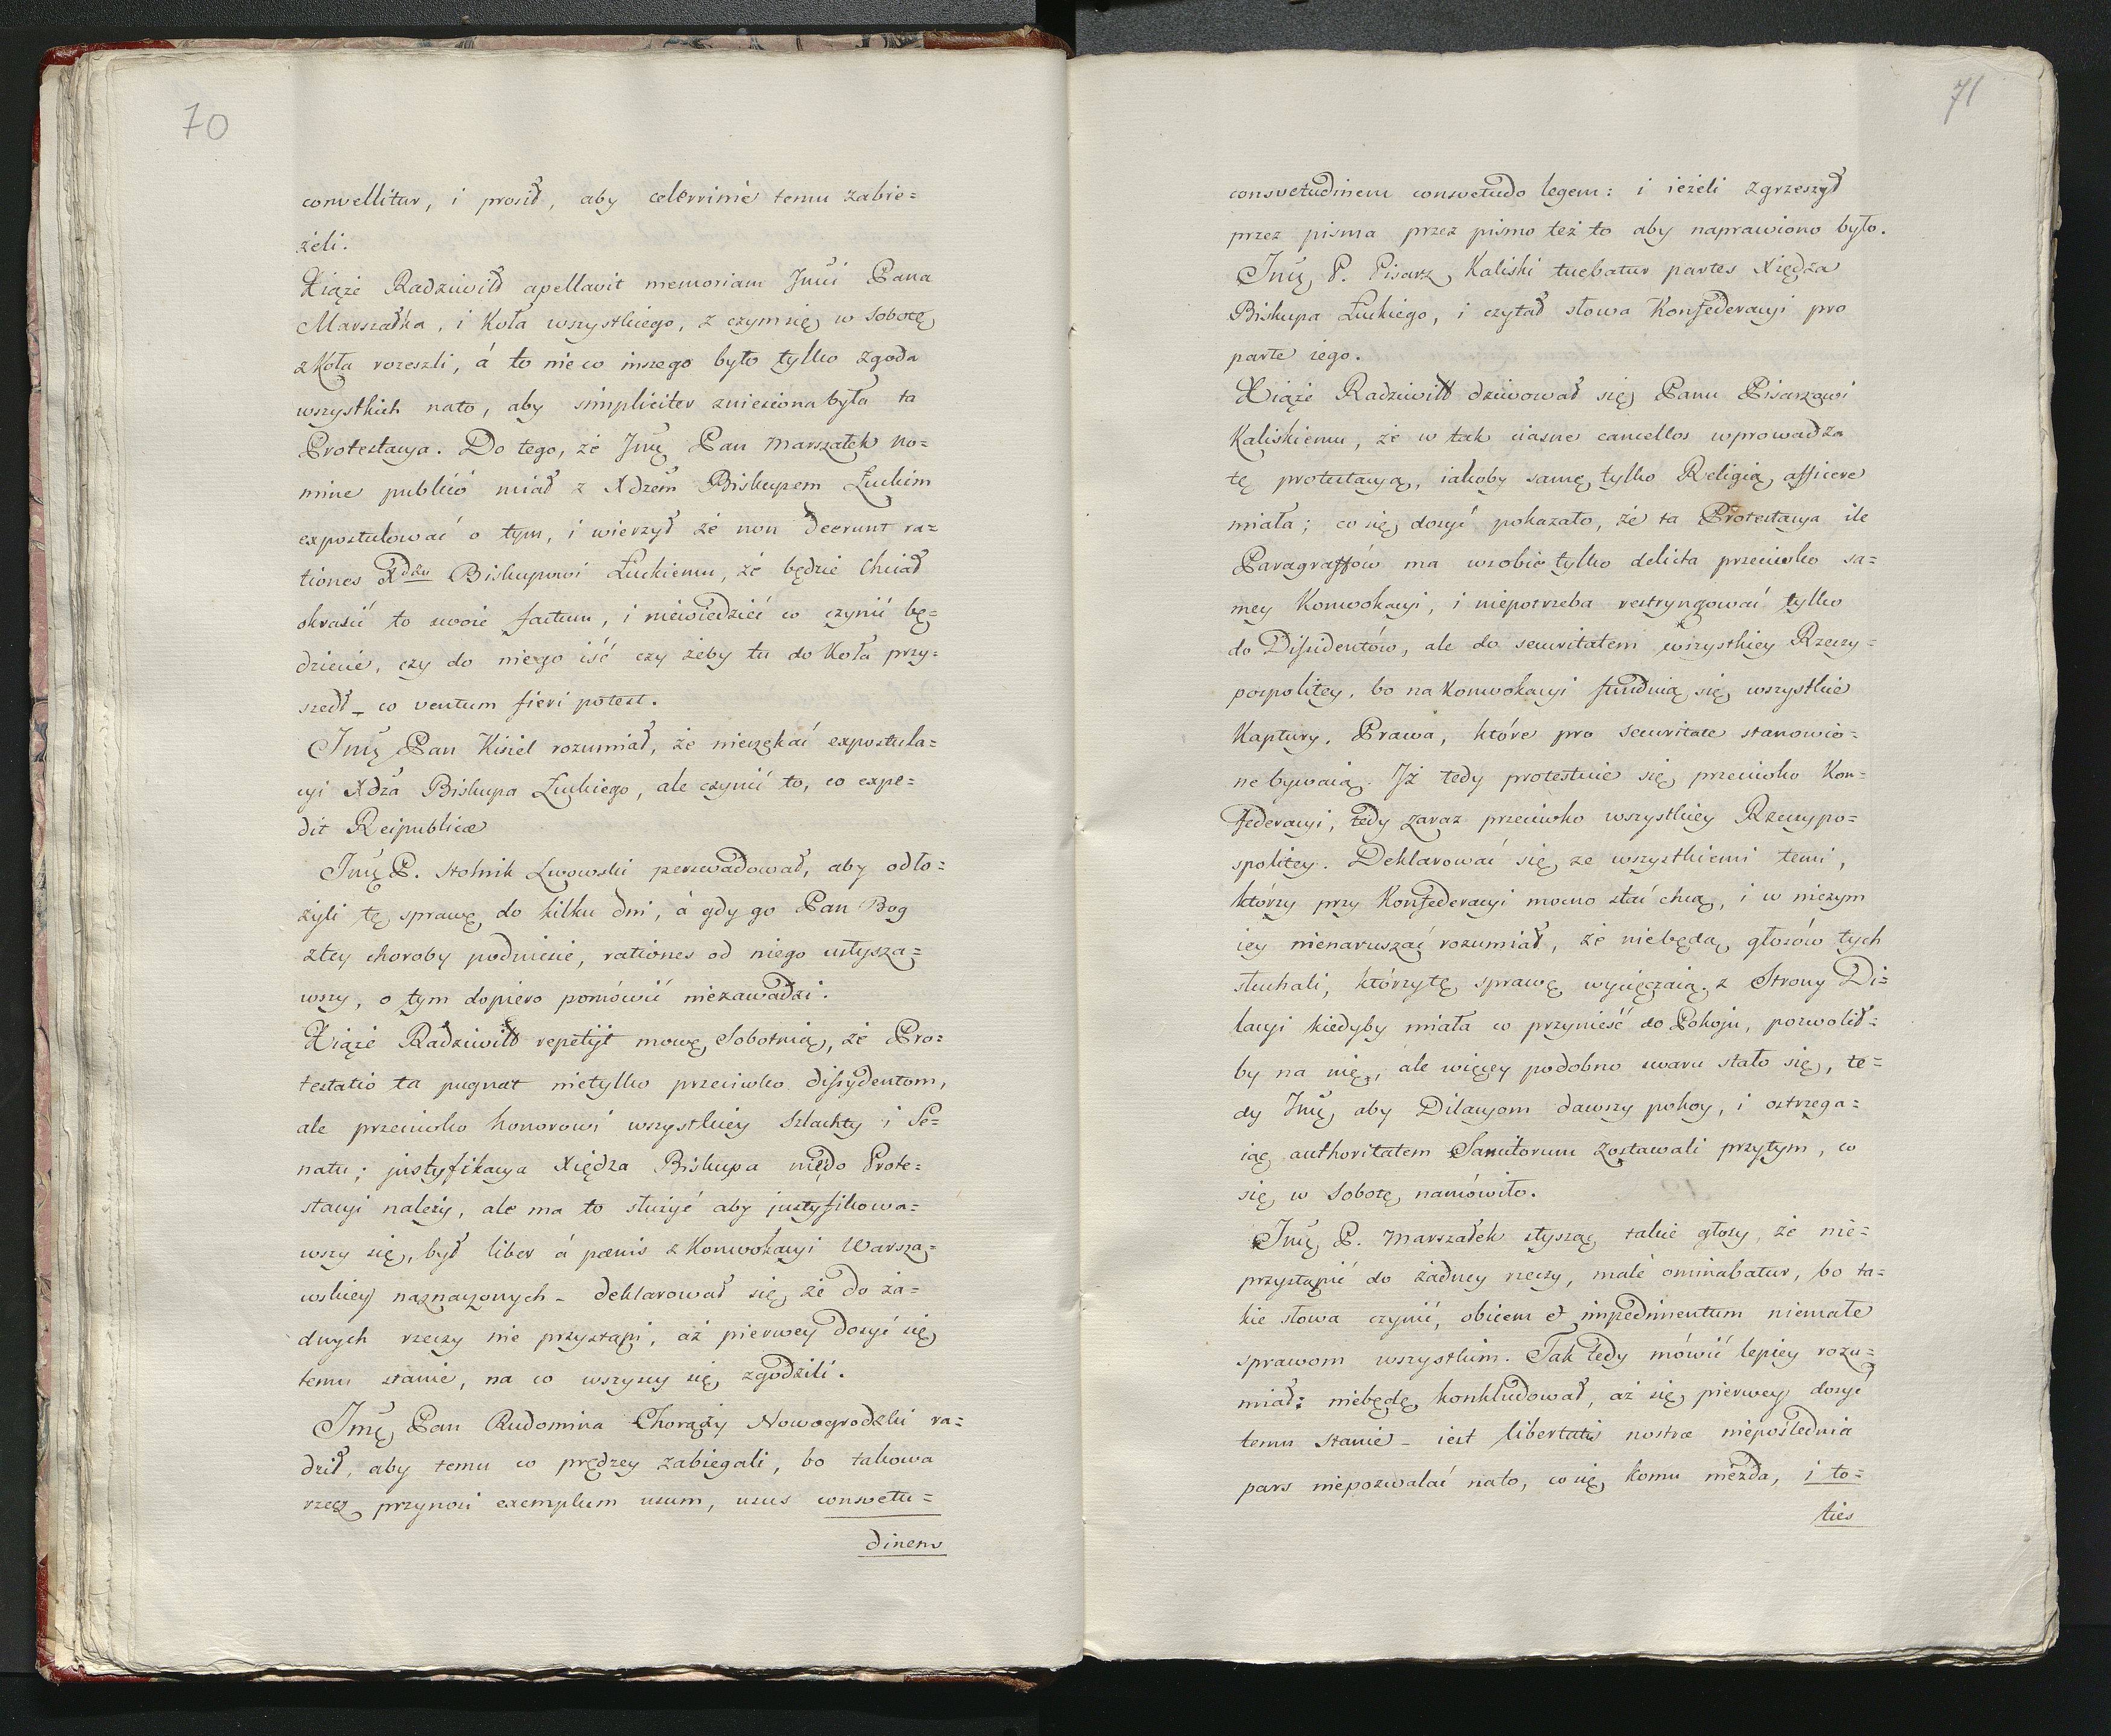 70
convellitur, i prosił, aby celerrime temu zabie=
żeli.
Xiąże Radziwiłł apellavit memoriam Jmći Pana
Marszałka, i Koła wszystkiego, z czym się w Sobotę
z Koła rozeszli, á to nie co inszego było tylko zgoda
wszystkich nato, aby simpliciter zniesiona była ta
Protestacya. Do tego, że Jmć Pan Marszałek no=
mine publico miał z Xdzem Biskupem Łuckim
expostulować o tym, i wierzył że non deerunt ra=
tiones Xdzu Biskupowi Łuckiemu, że będzie chciał
okrasić to swoie factum, i niewiedzieć co czynić bę=
dziecie, czy do niego iść czy żeby tu do Koła przy=
szedł _ co ventum fieri potest.
Jmć Pan Kisiel rozumiał, że nieczekać expostula=
cyi Xdza Biskupa Łuckiego, ale czynić to, co expe=
dit Reipublicæ
Jmć P. Stolnik Lwowski perswadował, aby odło=
żyli tę sprawę do kilku dni, á gdy go Pan Bog
z tey choroby podniesie, rationes od niego usłysza=
wszy, o tym dopiero pomówić niezawadzi.
Xiąże Radziwiłł repetijt mowę Sobotnią, że Pro=
testatio ta pugnat nietylko przeciwko dissydentom,
ale przeciwko honorowi wszystkiey Szlachty i Se=
natu; justyfikacya Xiędza Biskupa niędo Prote=
stacyi należy, ale ma to służyć aby justyfikowa=
wszy się, był liber á pœnis z Konwokacyi Warsza=
wskiey naznaczonych _ deklarował się, że do ża=
dnych rzeczy nie przystąpi, aż pierwey dosyć się
temu stanie, na co wszyscy się zgodzili.
Jmć Pan Rudomina Chorąży Nowogrodzki ra=
dził, aby temu co prędzey zabiegali, bo takowa
rzecz przynosi exemplum usum, usus conswetu=
dinem
71
consvetudinem consvetudo legem: i ieżeli zgrzeszył
przez pisma przez pismo też to aby naprawiono było.
Jmć P. Pisarz Kaliski tuebatur partes Xiędza
Biskupa Łuckiego, i czytał słowa Konfederacyi pro
parte iego.
Xiąże Radziwiłł dziwował się Panu Pisarzowi
Kaliskiemu, że w tak ciasne cancellos wprowadza
tę protestacyą, iakoby samę tylko Religią afficere
miała; co się dosyć pokazało, że ta Protestacya ile
Paragraffów ma w sobie tylko delicta przeciwko sa=
mey Konwokacyi, i niepotrzeba restryngować tylko
do Dissidentów, ale do securitatem wszystkiey Rzeczy=
pospolitey, bo na Konwokacyi fundnią się wszystkie
Kaptury, Prawa, które pro securitate stanowio=
ne bywaią. Iż tedy protestuie się przeciwko Kon=
federacyi, tedy zaraz przeciwko wszystkiey Rzeczypo=
spolitey. Deklarować się ze wszystkiemi temi,
którzy przy Konfederacyi mocno stać chcą, i w niczym
iey nienaruszać rozumiał, że niebędą głosów tych
słuchali, którzy tę sprawę wycięczaią z Strony Di=
lacyi kiedyby miała co przynieść do Pokoju, pozwolił=
by na nię, ale więcey podobno swaru stało się, te=
dy Jmć, aby Dilacyom dawszy pokoy, i ostrzega=
iąc authoritatem Sanitorum zostawali przytym, co
się w Sobotę namówiło.
Jmć P. Marszałek słysząc takie głosy, że nie=
przystąpić do żadney rzeczy, malè ominabatur, bo ta=
kie słowa czynić, obicem et impedimentum niemałe
sprawom wszystkim. Tak tedy mówić lepiey rozu=
miał: niebędę konkludował, aż się pierwey dosyć
temu stanie _ iest libertatis nostræ niepoślednia
pars niepozwalać nato, co się komu niezda, i to=
ties